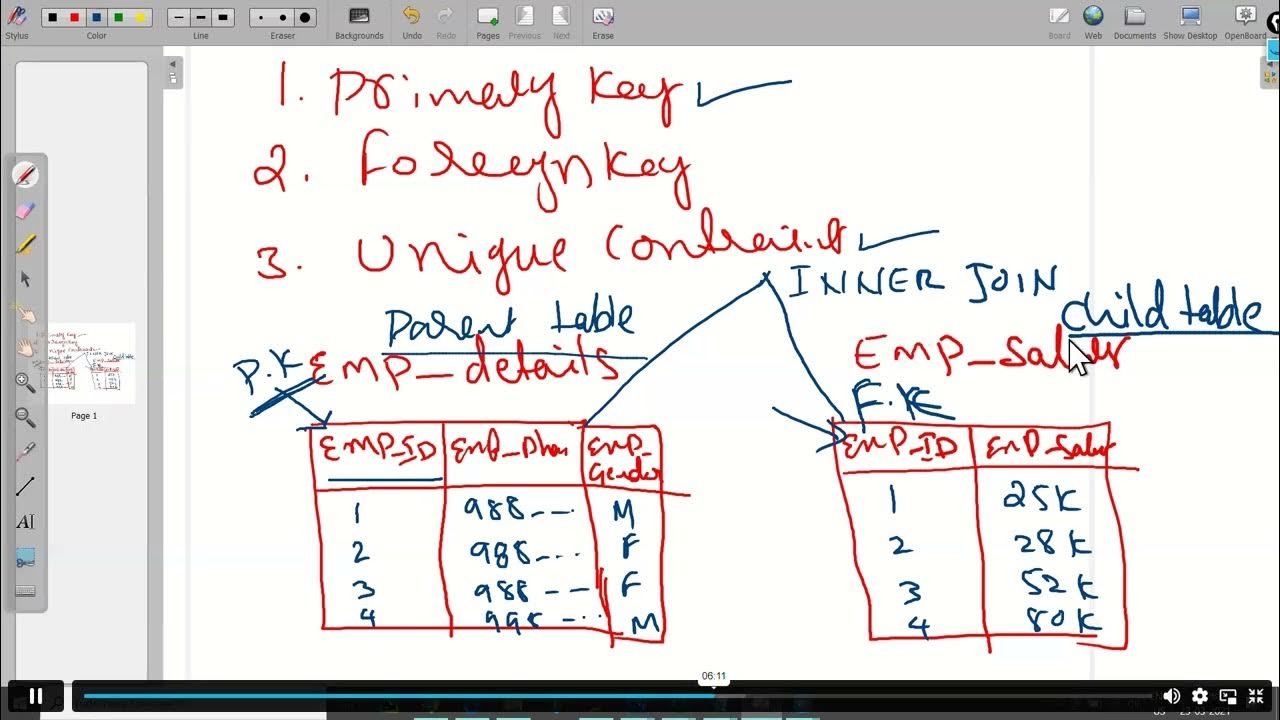 Stylus Color Line Eraser Backgrounds Undo Redo Pages Previous Next Erase Board Web Documents Show Desktop OpenBoard
1. Primary Key
2. Foreign Key
3. Unique Contraint
INNER JOIN
Parent table
Child table
P.K EMP_details
EMP_Salary
F.K
EMP_ID EMP_Phon EMP_Gender
EMP_ID EMP_Salary
1 988--- M
1 25K
2 988--.. F
2 28K
3 988-- F
3 52K
4 998 -.. M
4 80K
Page 1
06:11